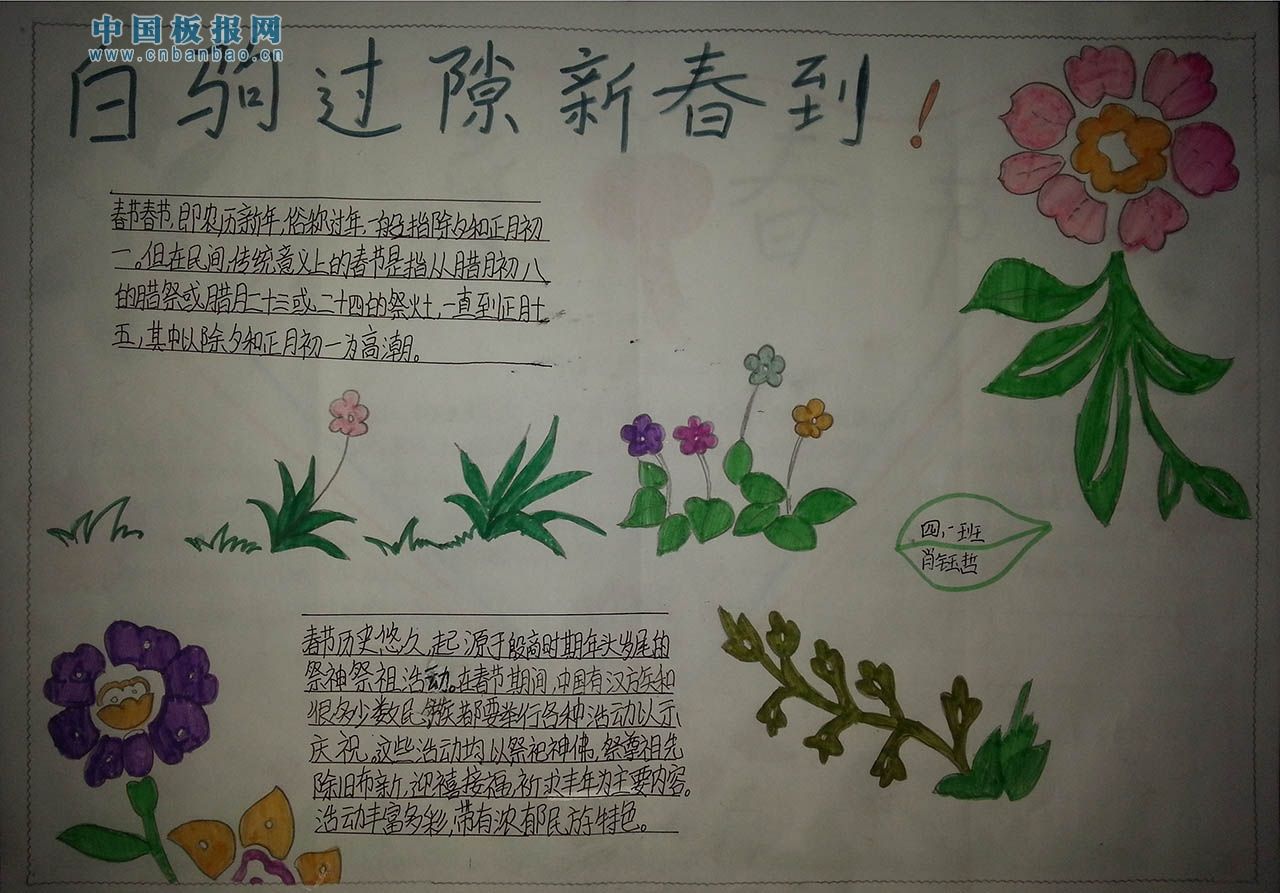 中国板报网
www.cnbanbao.cn
白驹过隙新春到！
春节春节，即农历新年，俗称过年，一般指除夕和正月初
一。但在民间，传统意义上的春节是指从腊月初八
的腊祭或腊月二十三或二十四的祭灶，一直到正月十
五，其中以除夕和正月初一为高潮。
四，一班
肖钰哲
春节历史悠久，起源于殷商时期年头岁尾的
祭神祭祖活动。在春节期间，中国有汉方族和
很多少数民族都要举行各种活动以示
庆祝。这些活动均以祭祀神佛，祭尊祖先
除旧布新，迎禧接福，祈求丰年为主要内容。
活动丰富多彩，带有浓郁民族特色。